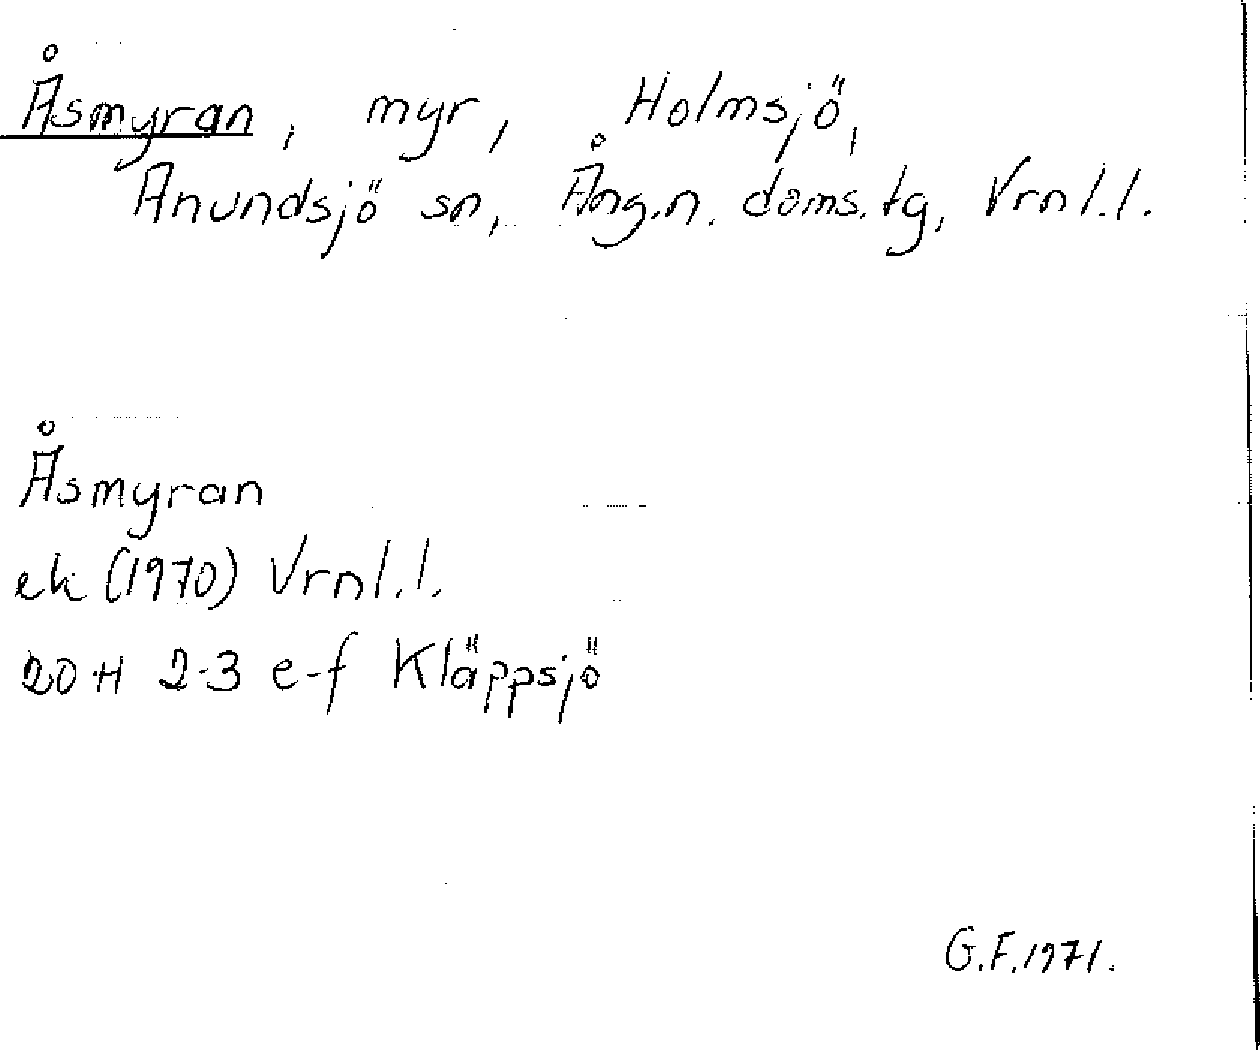 Åsmyran, myr, Holmsjö,
Anundsjö sn, Ång.n. doms.tg, Vrnl.l.
Åsmyran
ek (1970) Vrnl.l.
20 H 2-3 e-f Kläppsjö
G.F.1971.